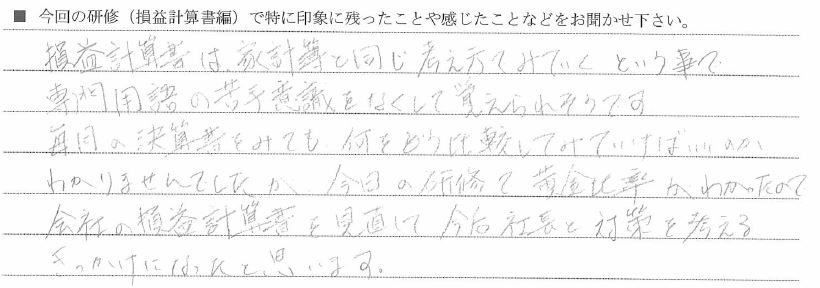 ■ 今回の研修（損益計算書編）で特に印象に残ったことや感じたことなどをお聞かせ下さい。
損益計算書は家計簿と同じ考え方でみていくという事で
専門用語の苦手意識をなくして覚えられそうです
毎月の決算書をみても、何をどう比較してみていけばいいのか
わかりませんでしたが、今日の研修で黄金比率がわかったので
会社の損益計算書を見直して今后社長と対策を考える
きっかけになったと思います。